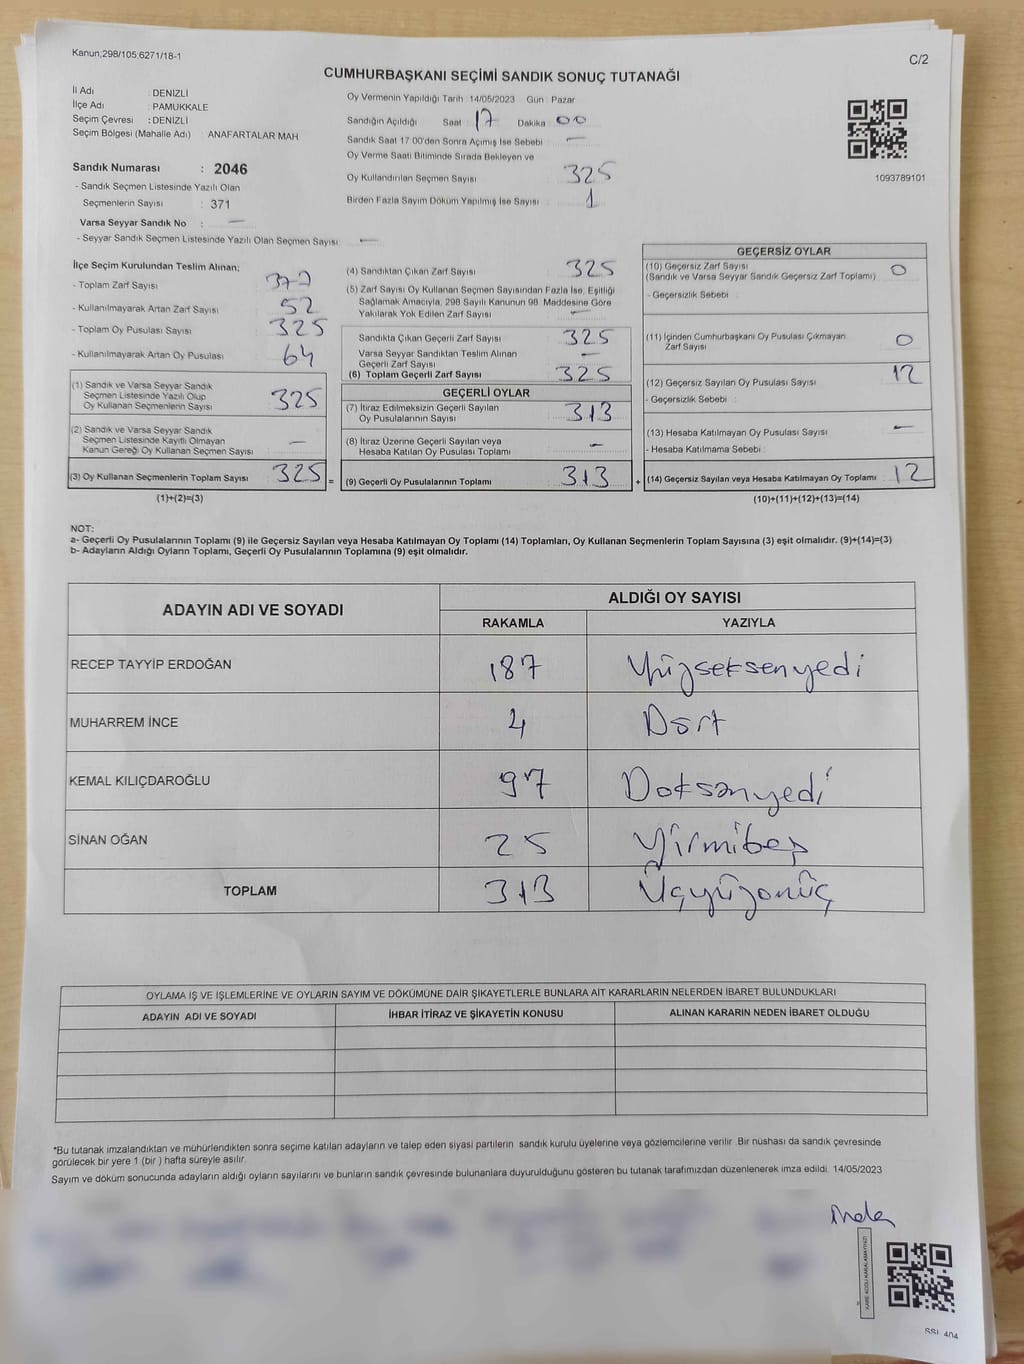 Kanun;298/105:6271/18-1
C/2
CUMHURBAŞKANI SEÇİMİ SANDIK SONUÇ TUTANAĞI
İl Adı : DENİZLİ
İlçe Adı : PAMUKKALE
Seçim Çevresi : DENİZLİ
Seçim Bölgesi (Mahalle Adı) : ANAFARTALAR MAH
Sandık Numarası : 2046
- Sandık Seçmen Listesinde Yazılı Olan
Seçmenlerin Sayısı : 371
Varsa Seyyar Sandık No : —
- Seyyar Sandık Seçmen Listesinde Yazılı Olan Seçmen Sayısı : —
Oy Vermenin Yapıldığı Tarih : 14/05/2023 Gün : Pazar
Sandığın Açıldığı Saat 17 Dakika 00
Sandık Saat 17:00'den Sonra Açımış İse Sebebi —
Oy Verme Saati Bitiminde Sırada Bekleyen ve
Oy Kullandırılan Seçmen Sayısı 325
Birden Fazla Sayım Döküm Yapılmış İse Sayısı 1
1093789101
İlçe Seçim Kurulundan Teslim Alınan;
- Toplam Zarf Sayısı 377
- Kullanılmayarak Artan Zarf Sayısı 52
- Toplam Oy Pusulası Sayısı 325
- Kullanılmayarak Artan Oy Pusulası 64
(1) Sandık ve Varsa Seyyar Sandık
Seçmen Listesinde Yazılı Olup
Oy Kullanan Seçmenlerin Sayısı 325
(2) Sandık ve Varsa Seyyar Sandık
Seçmen Listesinde Kayıtlı Olmayan
Kanun Gereği Oy Kullanan Seçmen Sayısı —
(3) Oy Kullanan Seçmenlerin Toplam Sayısı 325 =
(1)+(2)=(3)
(4) Sandıktan Çıkan Zarf Sayısı 325
(5) Zarf Sayısı Oy Kullanan Seçmen Sayısından Fazla İse, Eşitliği
Sağlamak Amacıyla, 298 Sayılı Kanunun 98. Maddesine Göre
Yakılarak Yok Edilen Zarf Sayısı —
Sandıkta Çıkan Geçerli Zarf Sayısı 325
Varsa Seyyar Sandıktan Teslim Alınan
Geçerli Zarf Sayısı —
(6) Toplam Geçerli Zarf Sayısı 325
GEÇERLİ OYLAR
(7) İtiraz Edilmeksizin Geçerli Sayılan
Oy Pusulalarının Sayısı 313
(8) İtiraz Üzerine Geçerli Sayılan veya
Hesaba Katılan Oy Pusulası Toplamı —
(9) Geçerli Oy Pusulalarının Toplamı 313 +
GEÇERSİZ OYLAR
(10) Geçersiz Zarf Sayısı
(Sandık ve Varsa Seyyar Sandık Geçersiz Zarf Toplamı) 0
- Geçersizlik Sebebi :
(11) İçinden Cumhurbaşkanı Oy Pusulası Çıkmayan
Zarf Sayısı 0
(12) Geçersiz Sayılan Oy Pusulası Sayısı 12
- Geçersizlik Sebebi :
(13) Hesaba Katılmayan Oy Pusulası Sayısı —
- Hesaba Katılmama Sebebi :
(14) Geçersiz Sayılan veya Hesaba Katılmayan Oy Toplamı 12
(10)+(11)+(12)+(13)=(14)
NOT:
a- Geçerli Oy Pusulalarının Toplamı (9) ile Geçersiz Sayılan veya Hesaba Katılmayan Oy Toplamı (14) Toplamları, Oy Kullanan Seçmenlerin Toplam Sayısına (3) eşit olmalıdır. (9)+(14)=(3)
b- Adayların Aldığı Oyların Toplamı, Geçerli Oy Pusulalarının Toplamına (9) eşit olmalıdır.
ADAYIN ADI VE SOYADI ALDIĞI OY SAYISI
RAKAMLA YAZIYLA
RECEP TAYYİP ERDOĞAN 187 Yüzseksenyedi
MUHARREM İNCE 4 Dört
KEMAL KILIÇDAROĞLU 97 Doksanyedi
SİNAN OĞAN 25 Yirmibeş
TOPLAM 313 Üçyüzonüç
OYLAMA İŞ VE İŞLEMLERİNE VE OYLARIN SAYIM VE DÖKÜMÜNE DAİR ŞİKAYETLERLE BUNLARA AİT KARARLARIN NELERDEN İBARET BULUNDUKLARI
ADAYIN ADI VE SOYADI İHBAR İTİRAZ VE ŞİKAYETİN KONUSU ALINAN KARARIN NEDEN İBARET OLDUĞU
*Bu tutanak imzalandıktan ve mühürlendikten sonra seçime katılan adayların ve talep eden siyasi partilerin sandık kurulu üyelerine veya gözlemcilerine verilir. Bir nüshası da sandık çevresinde
görülecek bir yere 1 (bir ) hafta süreyle asılır.
Sayım ve döküm sonucunda adayların aldığı oyların sayılarını ve bunların sandık çevresinde bulunanlara duyurulduğunu gösteren bu tutanak tarafımızdan düzenlenerek imza edildi. 14/05/2023
KARE KODU KARALAMAYINIZ!
SSI_404